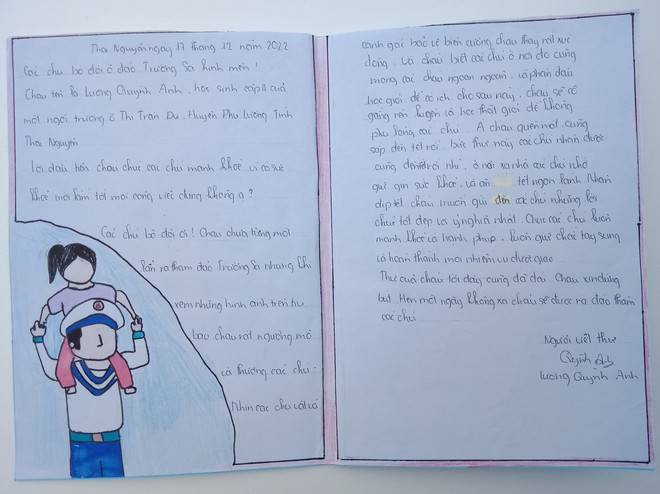 Thái Nguyên, ngày 17 tháng 12 năm 2022
Các chú bộ đội ở đảo Trường Sa kính mến!
Cháu tên là Lương Quỳnh Anh, học sinh cấp II của
một ngôi trường ở Thị Trấn Đu. Huyện Phú Lương Tỉnh
Thái Nguyên
Lời đầu tiên cháu chúc các chú mạnh khoẻ vì có sức
khoẻ mới làm tốt mọi công việc đúng không ạ?
Các chú bộ đội ơi! Cháu chưa từng một
lần ra thăm đảo Trường Sa nhưng khi
xem những hình ảnh trên ti
báo cháu rất ngưỡng mộ
và thương các chú.
Nhìn các chú vất vả
canh gác bảo vệ biên cương cháu thấy rất xúc
động. Và cháu biết các chú ở nơi đó cũng
mong các cháu ngoan ngoãn và phấn đấu
học giỏi để có ích cho sau này. cháu sẽ cố
gắng rèn luyện và học thật giỏi để không
phụ lòng các chú. A cháu quên mất cũng
sắp đến tết rồi. bức thư này các chú nhận được
cũng đến tết rồi nhỉ. ở nơi xa nhà các chú nhớ
giữ gìn sức khoẻ. và ăn tết ngon lành. Nhân
dịp tết cháu muốn gửi đến các chú những lời
chúc tốt đẹp và ý nghĩa nhất. Chúc các chú luôn
mạnh khoẻ và hạnh phúc, luôn giữ chắc tay súng
và hoàn thành mọi nhiệm vụ được giao
Thư của cháu tới đây cũng đã dài. Cháu xin dừng
bút. Hẹn một ngày không xa cháu sẽ được ra đảo thăm
các chú
Người viết thư
Quỳnh Anh
Lương Quỳnh Anh